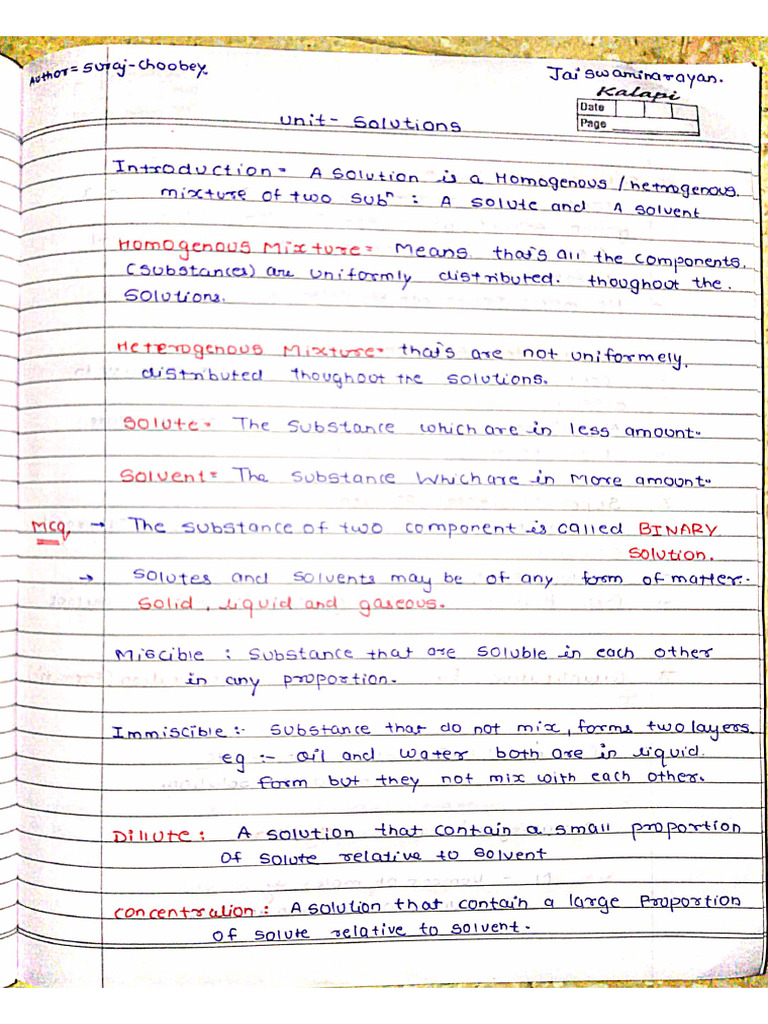 Author = Suraj-Choobey.
Jai swaminarayan.
Kalapi
Date
Page
Unit - Solutions
Introduction = A solution is a Homogenous / hetrogenous.
mixture of two subⁿ : A solute and A solvent
Homogenous Mixture = Means that's all the components.
(substances) are uniformly distributed. thoughout the.
Solutions.
Heterogenous Mixture = that's are not uniformely.
distributed thoughout the solutions.
Solute = The substance which are in less amount.
Solvent = The substance which are in more amount.
MCQ → The substance of two component is called BINARY
Solution.
→ solutes and solvents may be of any form of matter.
Solid, liquid and gaseous.
Miscible : substance that are soluble in each other
in any proportion.
Immiscible :- substance that do not mix, forms two layers.
eg :- oil and water both are in liquid.
form but they not mix with each other.
Dillute : A solution that contain a small proportion
of solute relative to solvent
Concentration : A solution that contain a large Proportion
of solute relative to solvent.